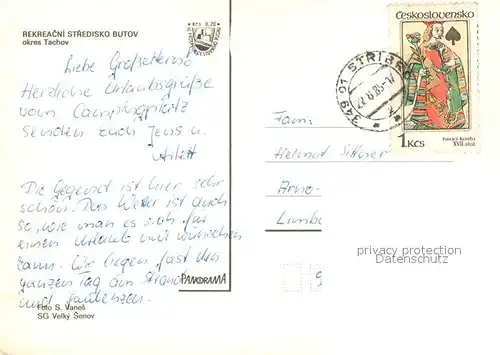 REKREAČNÍ STŘEDISKO BUTOV
okres Tachov
Kčs 0,20
Liebe Großeltern
Herzliche Urlaubsgrüße
vom Campingplatz
senden euch Jens u.
Die Gegend ist hier sehr
schön. Das Wetter ist auch
so, wie man es sich für
einen Urlaub nur wünschen
kann. Wir liegen fast den
ganzen Tag am Strand
und faulenzen.
PANORAMA
Foto S. Vaneš
SG Velký Šenov
Československo
1 Kčs
XVII. stol.
349 01 STŘÍBRO
Fam.
Helmut
Arno-
Limba
privacy protection
Datenschutz